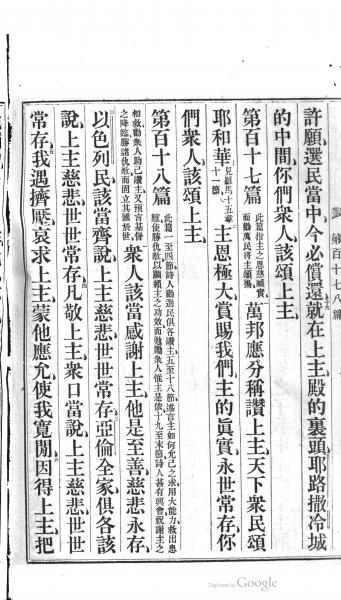 聖 第百十七八篇
許願選民當中今必償還就在上主殿的裏頭耶路撒冷城
的中間你們衆人該頌上主
第百十七篇 此篇指主之恩慈誠實而勸萬民將主頌揚 萬邦應分稱讚上主天下衆民頌
耶和華 見羅馬十五章十一節 主恩極大賞賜我們主的眞實永世常存你
們衆人該頌上主
第百十八篇 此篇一至四節詩人勸選民俱各讚主五至十八節述言主如何允己之求用大能力救出患經使勝仇敵以顯賴主之功效而勉勵衆人惟主是依十九至末節詩人甚有興會祝謝主之
相救勸衆人助己讚主又預言基督之降臨勝諸仇敵而固立其國於世 衆人該當感謝上主他是至善慈悲永存
以色列民該當齊說上主慈悲世世常存亞倫全家俱各該
說上主慈悲世世常存凡敬上主衆口當說上主慈悲世世
常存我遇擠壓哀求上主蒙他應允使我寬閒因得上主把
Digitized by Google